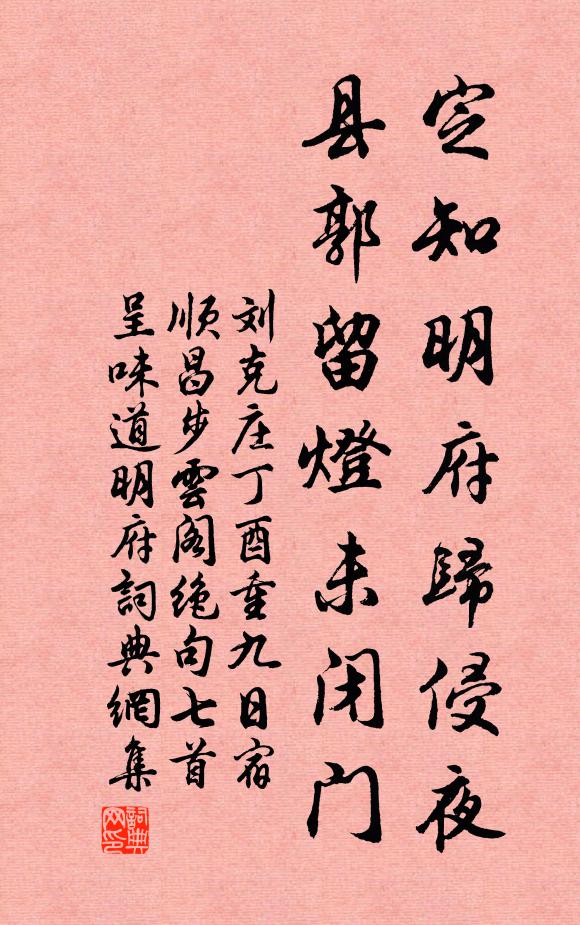 定知明府歸侵夜
县郭留燈未闭门
刘克庄丁酉重九日宿
顺昌步雲阁绝句七首
呈味道明府詞典網集
詞典
网印